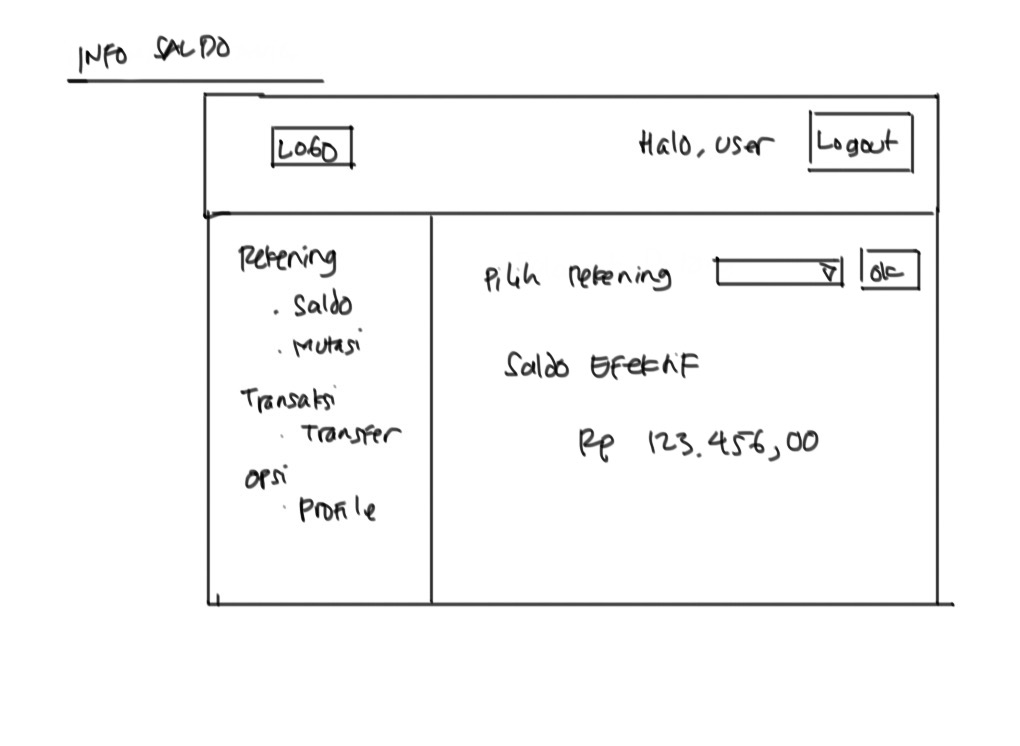 INFO SALDO
LOGO
Halo, user
Logout
Rekening
. Saldo
. Mutasi
Transaksi
. Transfer
Opsi
. Profile
Pilih rekening
ok
Saldo Efektif
Rp 123.456,00